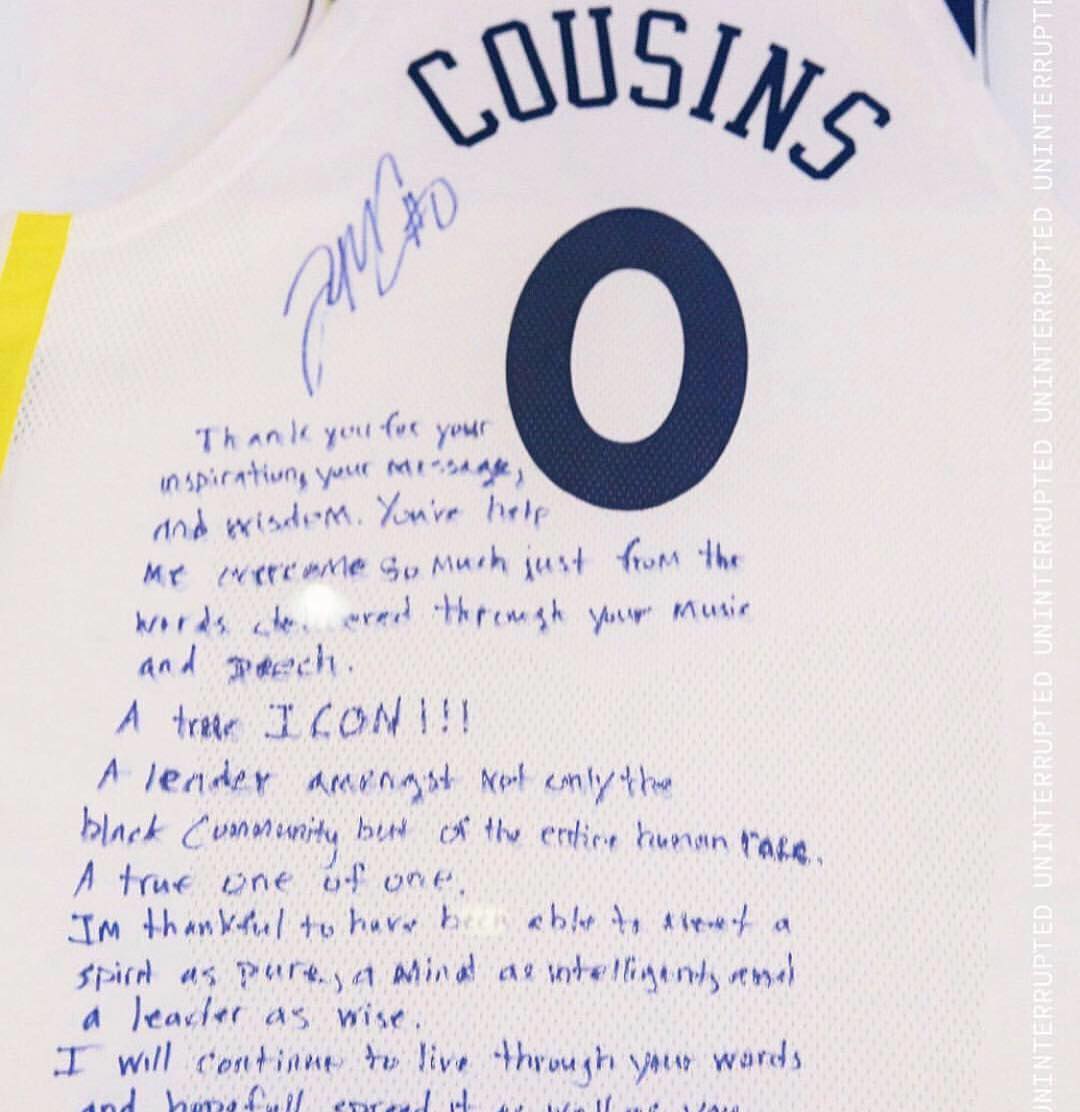 COUSINS
#0
0
Thank you for your
inspiration, your message,
and wisdom. You've help
me overcome so much just from the
words through your music
and
A true ICON!!!
A leader amongst not only the
black community but of the entire human race.
A true one of one.
Im thankful to have been able to meet a
spirit as pure, a mind as intelligent, and
a leader as wise.
I will continue to live through your words
and hopefull spread it as well as you
UNINTERRUPTED UNINTERRUPTED UNINTERRUPTED UNINTERRUPTED UNINTERRUPTED